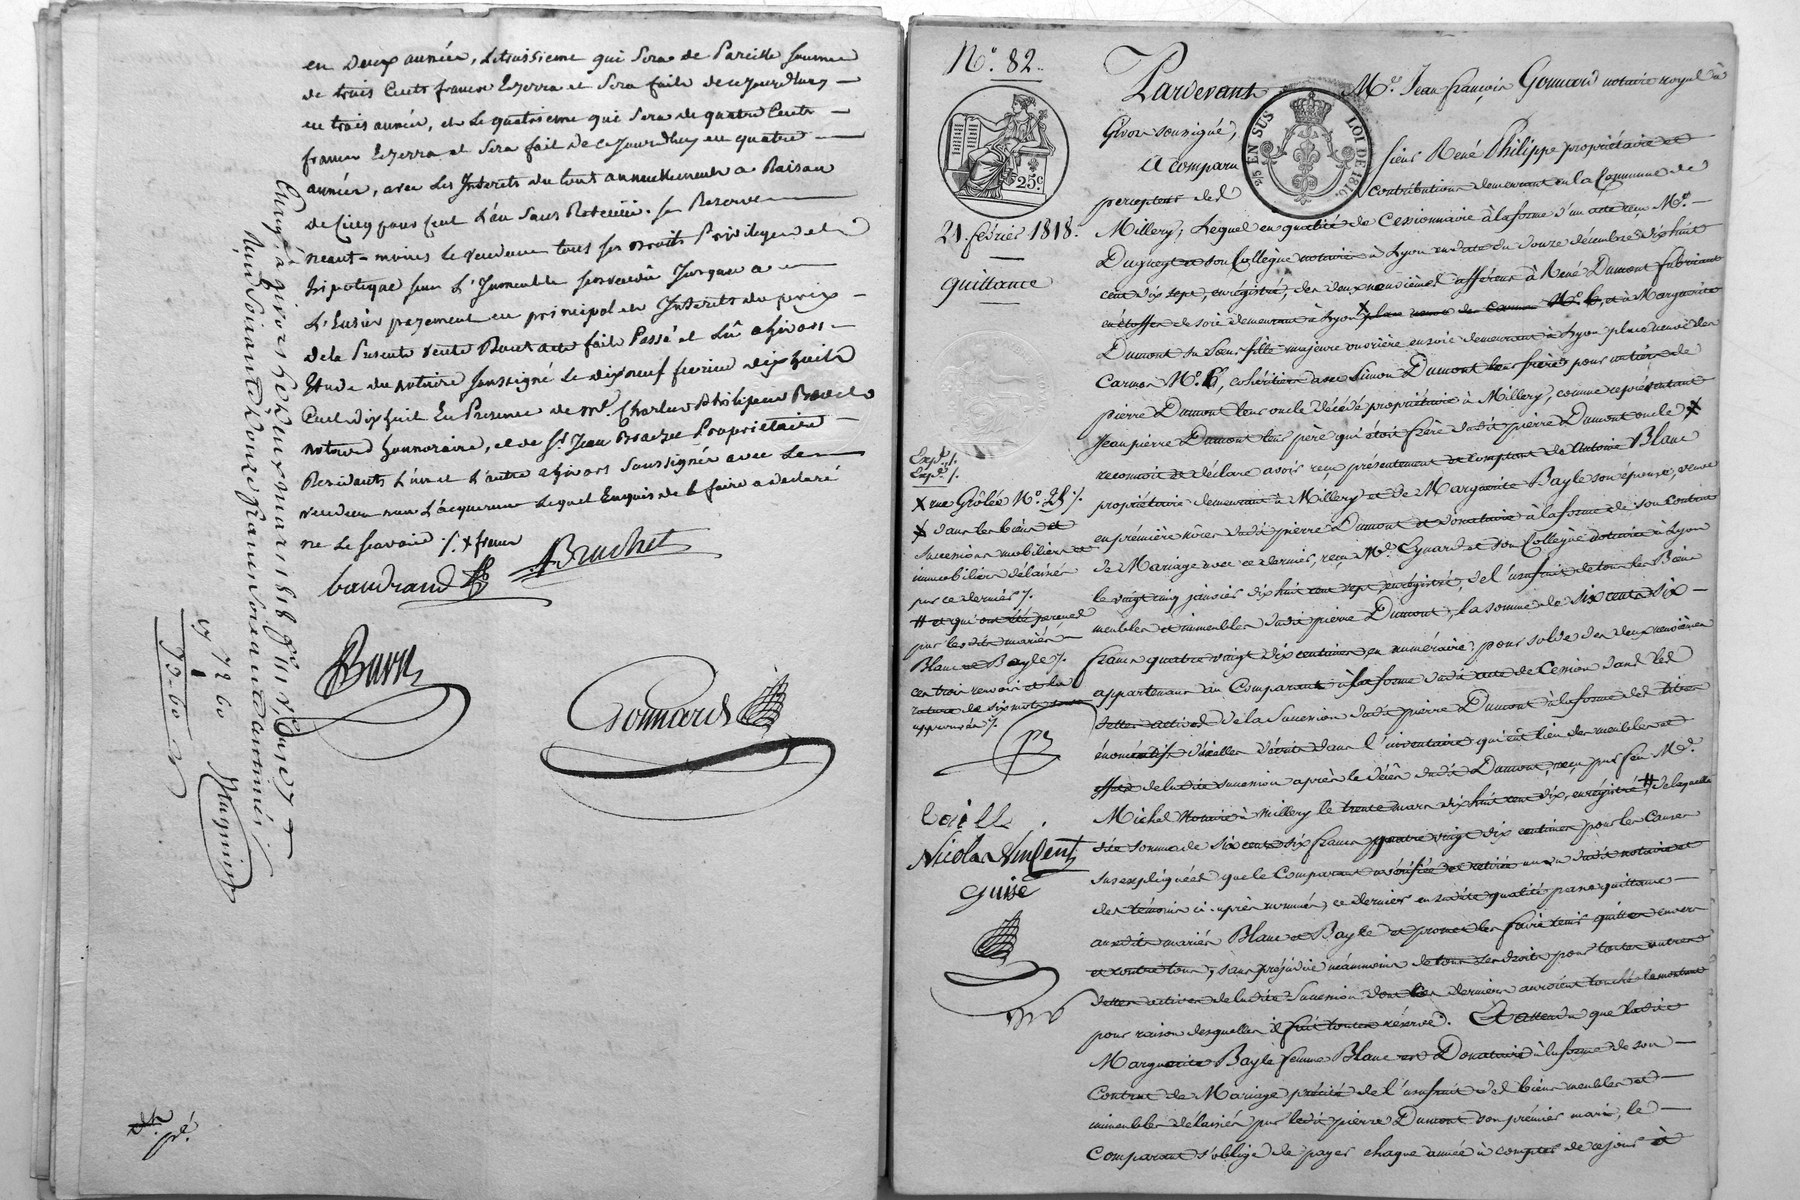 en deux années, le troisieme qui sera de pareille somme
de trois cents francs Echerra et sera fait de ce jourdhuy
en trois années, et le quatrieme qui sera de quatre cents
francs Echerra et sera fait de ce jourdhuy en quatre
années, avec les Interets du tout annuellement a Raison
de cinq pour cent l'an sans Retenüe. se Reserve
neant-moins le vendeur tous ses droits Privileges et
hipoteque sur l'Immeuble survendu jusques a
l'Entier payement en principal et Interets du prix
de la presente vente Dont acte fait Passé et Lû a givors
Etude du notaire soussigné le dix neuf fevrier dix huit
Cent dix huit En Presence de mr. Charles Philipeau
notaire honnoraire, et de sr. Jean Propriétaire
Residants l'un et l'autre a givors soussignés avec le
vendeur non l'acquereur lequel Enquis de le faire a declaré
ne le scavoir ./. x francs
baudrand
ABruchet
Gonnard
Enregé. à givors le deux mars 1818 fo.
Reçu soixante douze francs soixante centimes
72 60
79-60
Nº. 82.
25c.
EN SUS
LOI DE 1816
21. fevrier 1818.
quittance
Expé. /.
Expé. /.
x rue Grôlée Nº. 25 /.
x dans les biens et
successions mobilière et
immobilière délaissés
par ce dernier /.
# et qui ont été perçues
par les dits mariés
Blanc et Bayle /.
ces trois renvois et la
rature de six mots
approuvés /.
Nicolas Vincent
Pardevant Me. Jean françois Gonnard notaire royal à
Givors soussigné,
A comparu sieur René Philippe propriétaire et
percepteur des contributions demeurant en la Commune de
Millery, lequel en qualité de Cessionnaire à la forme d'un acte reçu Me.
Duguey et son Collègue notaires à Lyon en date du douze décembre dix huit
cent dix sept, enregistré, des deux neuvièmes afférens à René Dumont fabricant
en étoffes de soie demeurant à Lyon x place neuve des carmes Nº. 6, et à Marguerite
Dumont sa sœur fille majeure ouvrière en soie demeurant à Lyon place neuve des
Carmes Nº. 6, cohéritiers avec Simon Dumont leur frère, pour un tiers de
pierre Dumont leur oncle décédé propriétaire à Millery, comme représentant
Jean pierre Dumont leur père qui étoit frère dudit pierre Dumont oncle x
reconnoit et déclare avoir reçu présentement et comptant de Antoine Blanc
propriétaire demeurant à Millery et de Marguerite Bayle son épouse, veuve
en première nôces dudit pierre Dumont et donataire à la forme de son Contrat
de Mariage avec ce dernier, reçu Me. Eynard et son Collègue notaires à Lyon
le vingt cinq janvier dix huit cent sept, enregistré, de l'usufruit de tous les Biens
meubles et immeubles dudit pierre Dumont, la somme de six cents six
francs quatre vingt dix centimes en numéraire, pour solde des deux neuvièmes
appartenans au Comparant à la forme dudit acte de Cession dans les
dettes actives de la Succession dudit pierre Dumont à la forme des titres
énoncés d'icelles décrits dans l'inventaire qui eut lieu des meubles et
effets de la dite succession après le décès dudit Dumont, reçu par feu Me.
Michel Notaire à Millery le trente mars dix huit cent dix, enregistré, # de laquelle
dite somme de six cents six francs quatre vingt dix centimes pour les causes
sus expliquées que le Comparant a vérifiée et retirée au vu dudit notaire et
des témoins ci-après nommés, ce dernier en sadite qualité passe quittance
auxdits mariés Blanc et Bayle et promet les faire tenir quittes envers
et contre tous, sans préjudice néanmoins de tous ses droits pour toutes autres
dettes actives de ladite Succession dont les derniers auroient touché le montant
pour raison desquelles il fait toutes réserves. Et attendu que ladite
Marguerite Bayle femme Blanc est Donataire à la forme de son
Contrat de Mariage précité de l'usufruit des biens meubles et
immeubles délaissés par ledit pierre Dumont son premier mari, le
Comparant s'oblige de payer chaque année à compter de ce jour et